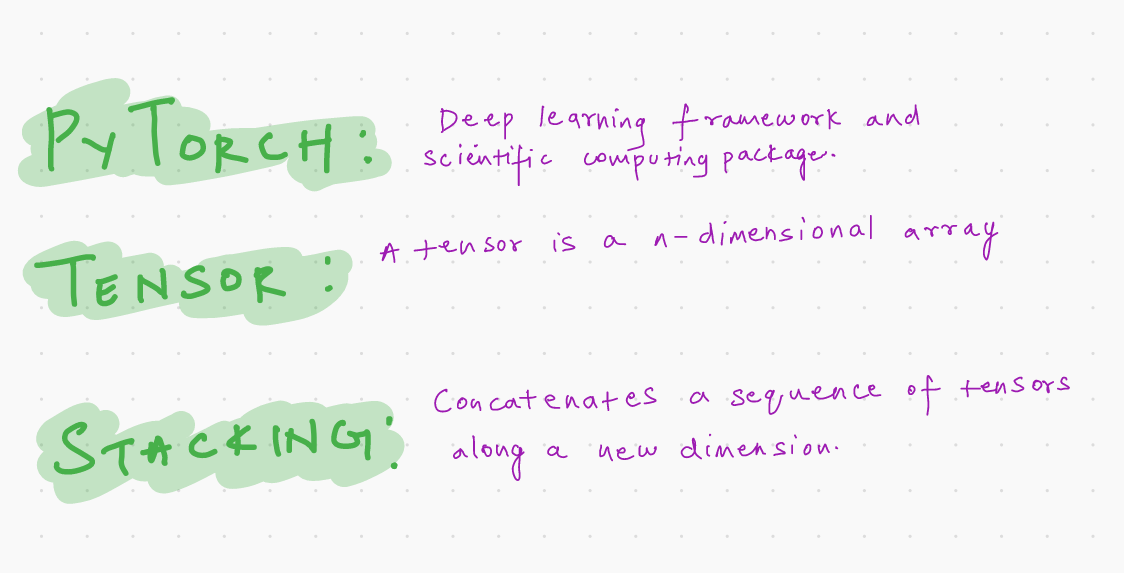 PyTORCH: Deep learning framework and
scientific computing package.
TENSOR: A tensor is a n-dimensional array
STACKING: Concatenates a sequence of tensors
along a new dimension.